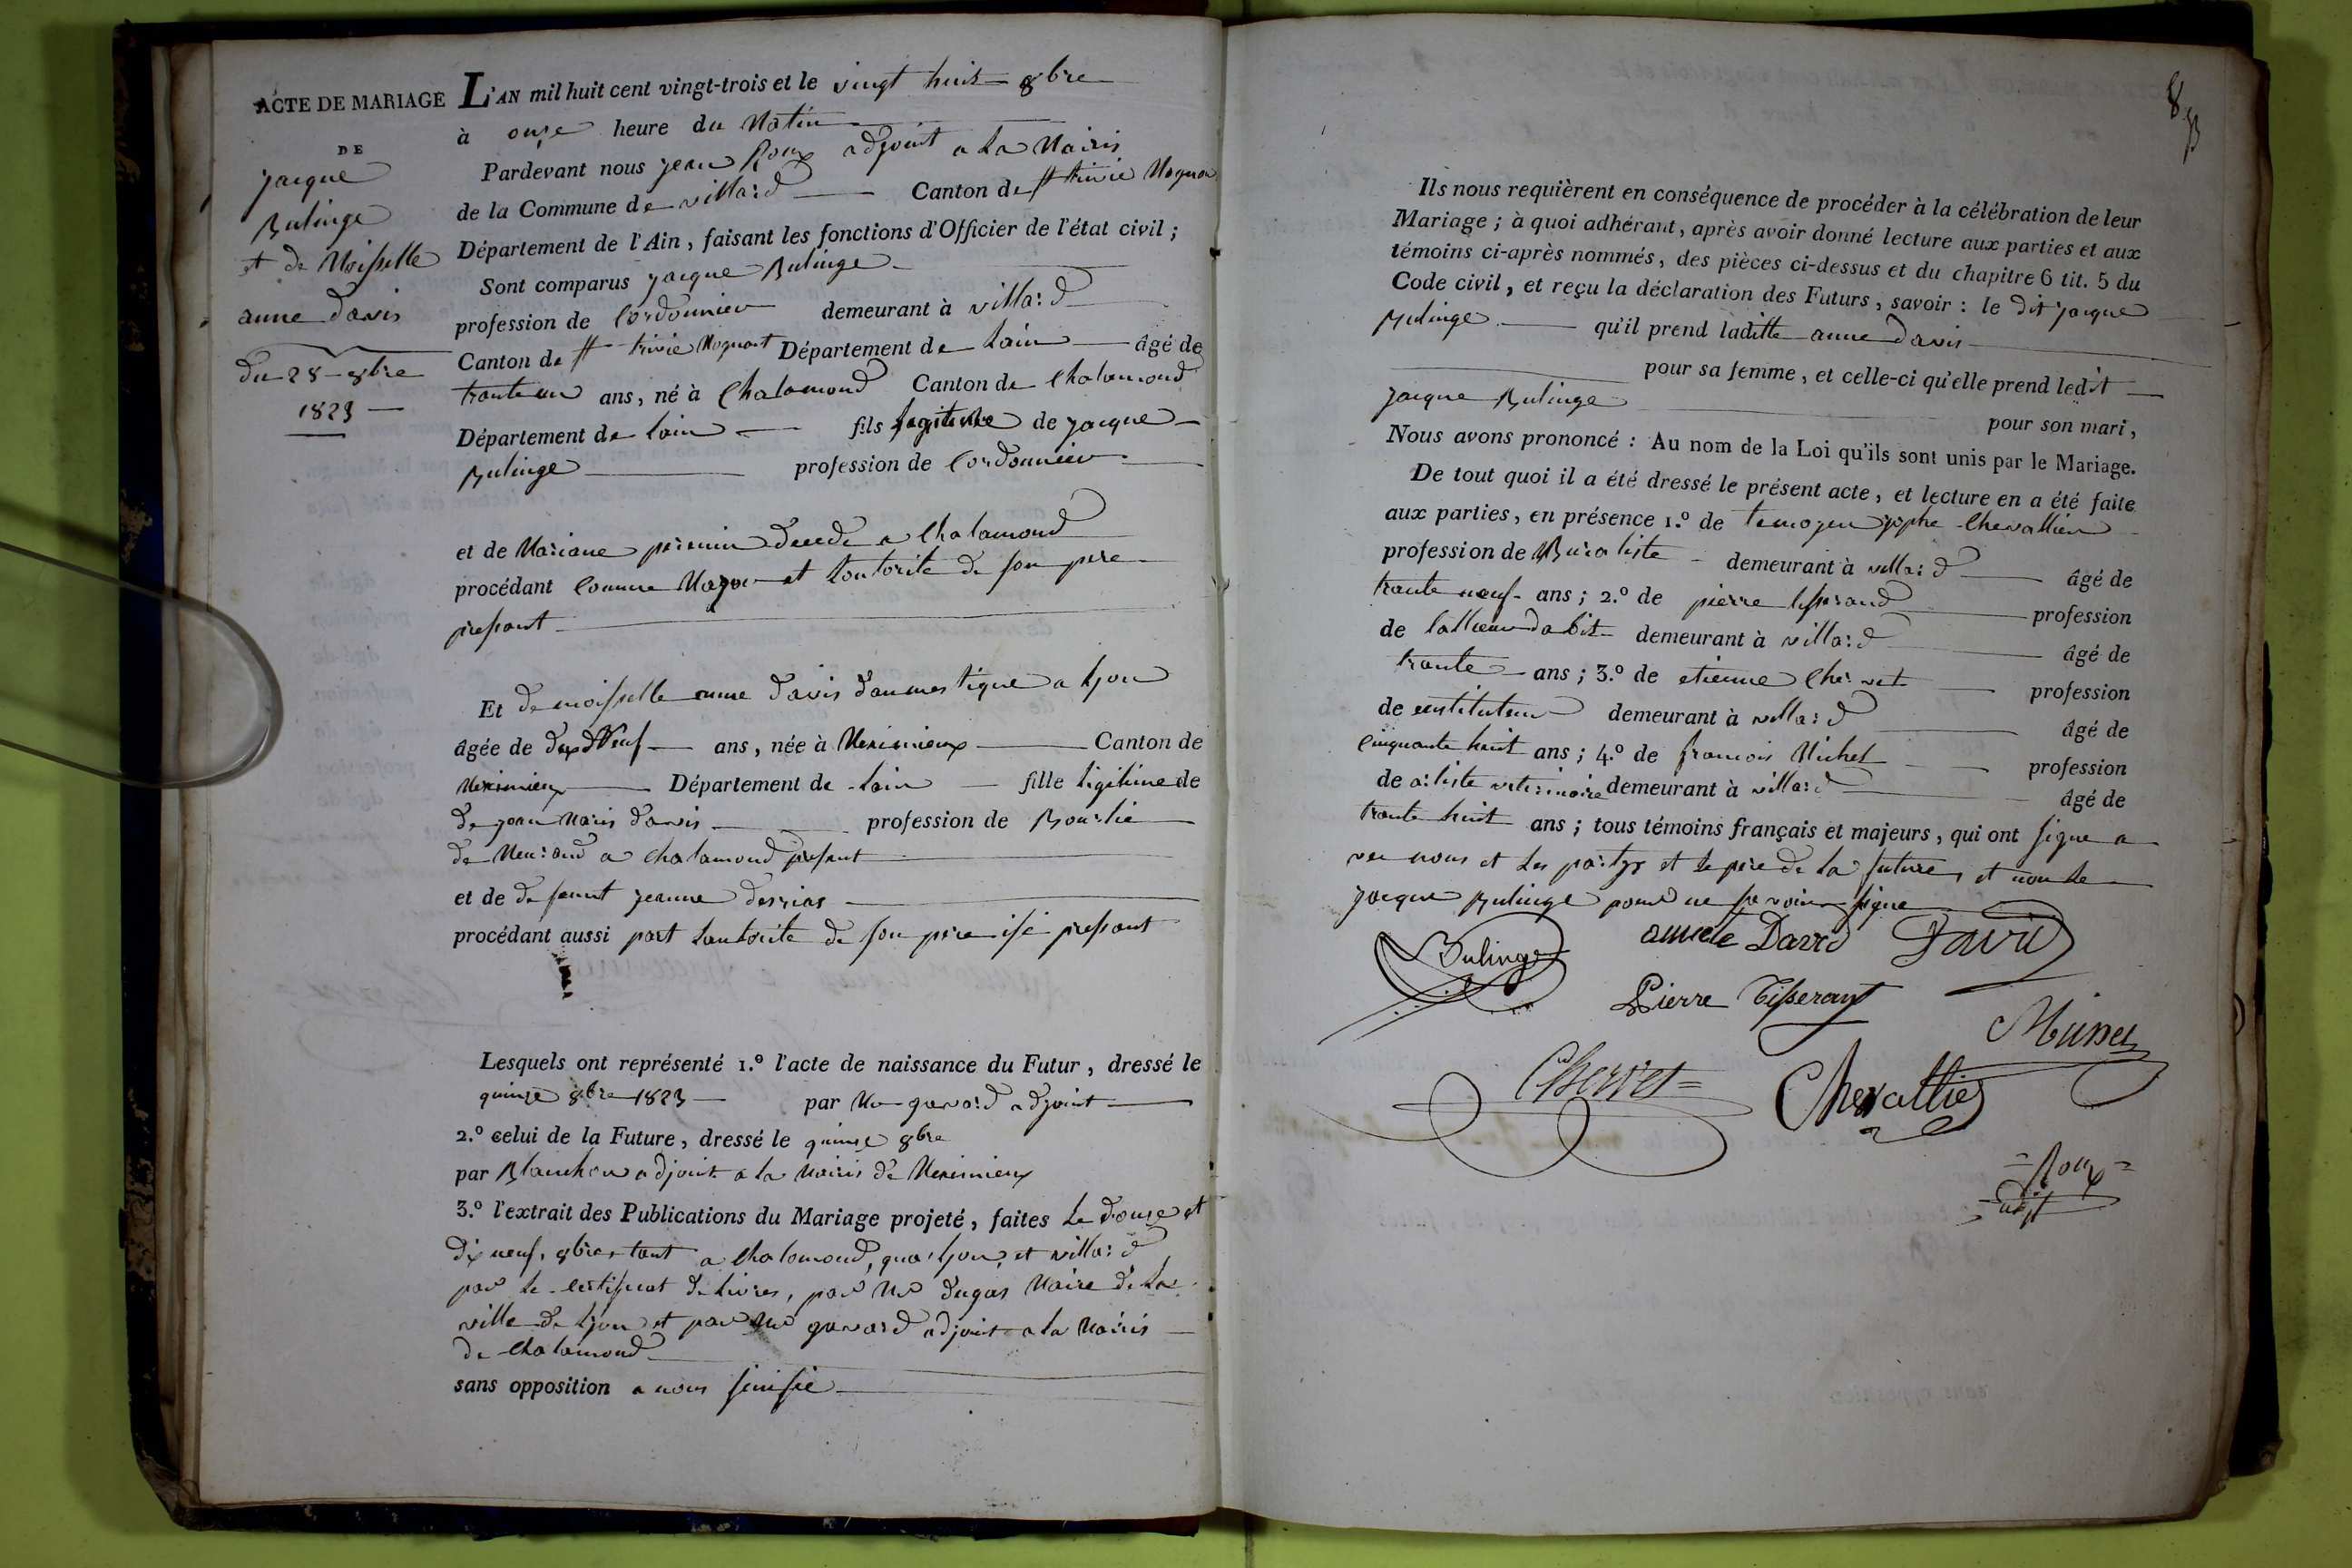 ACTE DE MARIAGE
DE
jacque
Bulinge
et de Moisselle
anne davis
du 28 8bre
1823
L'AN mil huit cent vingt-trois et le vingt huit 8bre
à onze heure du Matin
Pardevant nous jean Roux adjoint a la Mairis
de la Commune de villard Canton de st trivie
Département de l'Ain, faisant les fonctions d'Officier de l'état civil;
Sont comparus jacque Bulinge
profession de Cordonnier demeurant à villard
Canton de st trivie Département de Lain âgé de
trante un ans, né à Chalamond Canton de Chalamond
Département de Lain fils legitime de jacque
Bulinge profession de Cordonnier
et de Mariane perenin decede a Chalamond
procédant Comme Major et Lontorite de son pere
presant
Et demoisselle anne davis daumestique a Lyon
âgée de dix Neuf ans, née à Meximieux Canton de
Meximieux Département de Lain fille ligitime de
de jean Maris davis profession de Bourlié
de Meurand a Chalamond presant
et de defeunt jeanne
procédant aussi part Lantorite de son pere isi presant
Lesquels ont représenté 1.º l'acte de naissance du Futur, dressé le
quinze 8bre 1823 par Mr gavard adjoint
2.º celui de la Future, dressé le quinze 8bre
par Blanchon adjoint a la Mairis de Meximieux
3.º l'extrait des Publications du Mariage projeté, faites le douze et
dix neuf, 8bre tant a Chalamond, qua Lyon, et villard
par le certificat delivres, par Mr dugas Maire de la
ville de Lyon et par Mr gavard adjoint a la Mairis
de Chalamond
sans opposition a nous sinifie
8
Ils nous requièrent en conséquence de procéder à la célébration de leur
Mariage; à quoi adhérant, après avoir donné lecture aux parties et aux
témoins ci-après nommés, des pièces ci-dessus et du chapitre 6 tit. 5 du
Code civil, et reçu la déclaration des Futurs, savoir: le dit jacque
Bulinge qu'il prend laditte anne davis
pour sa femme, et celle-ci qu'elle prend ledit
jacque Bulinge pour son mari,
Nous avons prononcé: Au nom de la Loi qu'ils sont unis par le Mariage.
De tout quoi il a été dressé le présent acte, et lecture en a été faite
aux parties, en présence 1.º de temogen Chevallier
profession de Buraliste demeurant à villard âgé de
trante neuf ans; 2.º de pierre tisserand profession
de tallieur dabit demeurant à villard âgé de
trante ans; 3.º de etienne Chervet profession
de enstituteur demeurant à villard âgé de
Cinquante huit ans; 4.º de francois Michet profession
de artiste veterinaire demeurant à villard âgé de
trante huit ans; tous témoins français et majeurs, qui ont signe a
vec nous et les partys et le pere de la future, et non le
jacque Bulinge pour ne savoir signe
Bulinge
David
David
Pierre Tisserant
Chervet
Chevallier
Roux
adjt